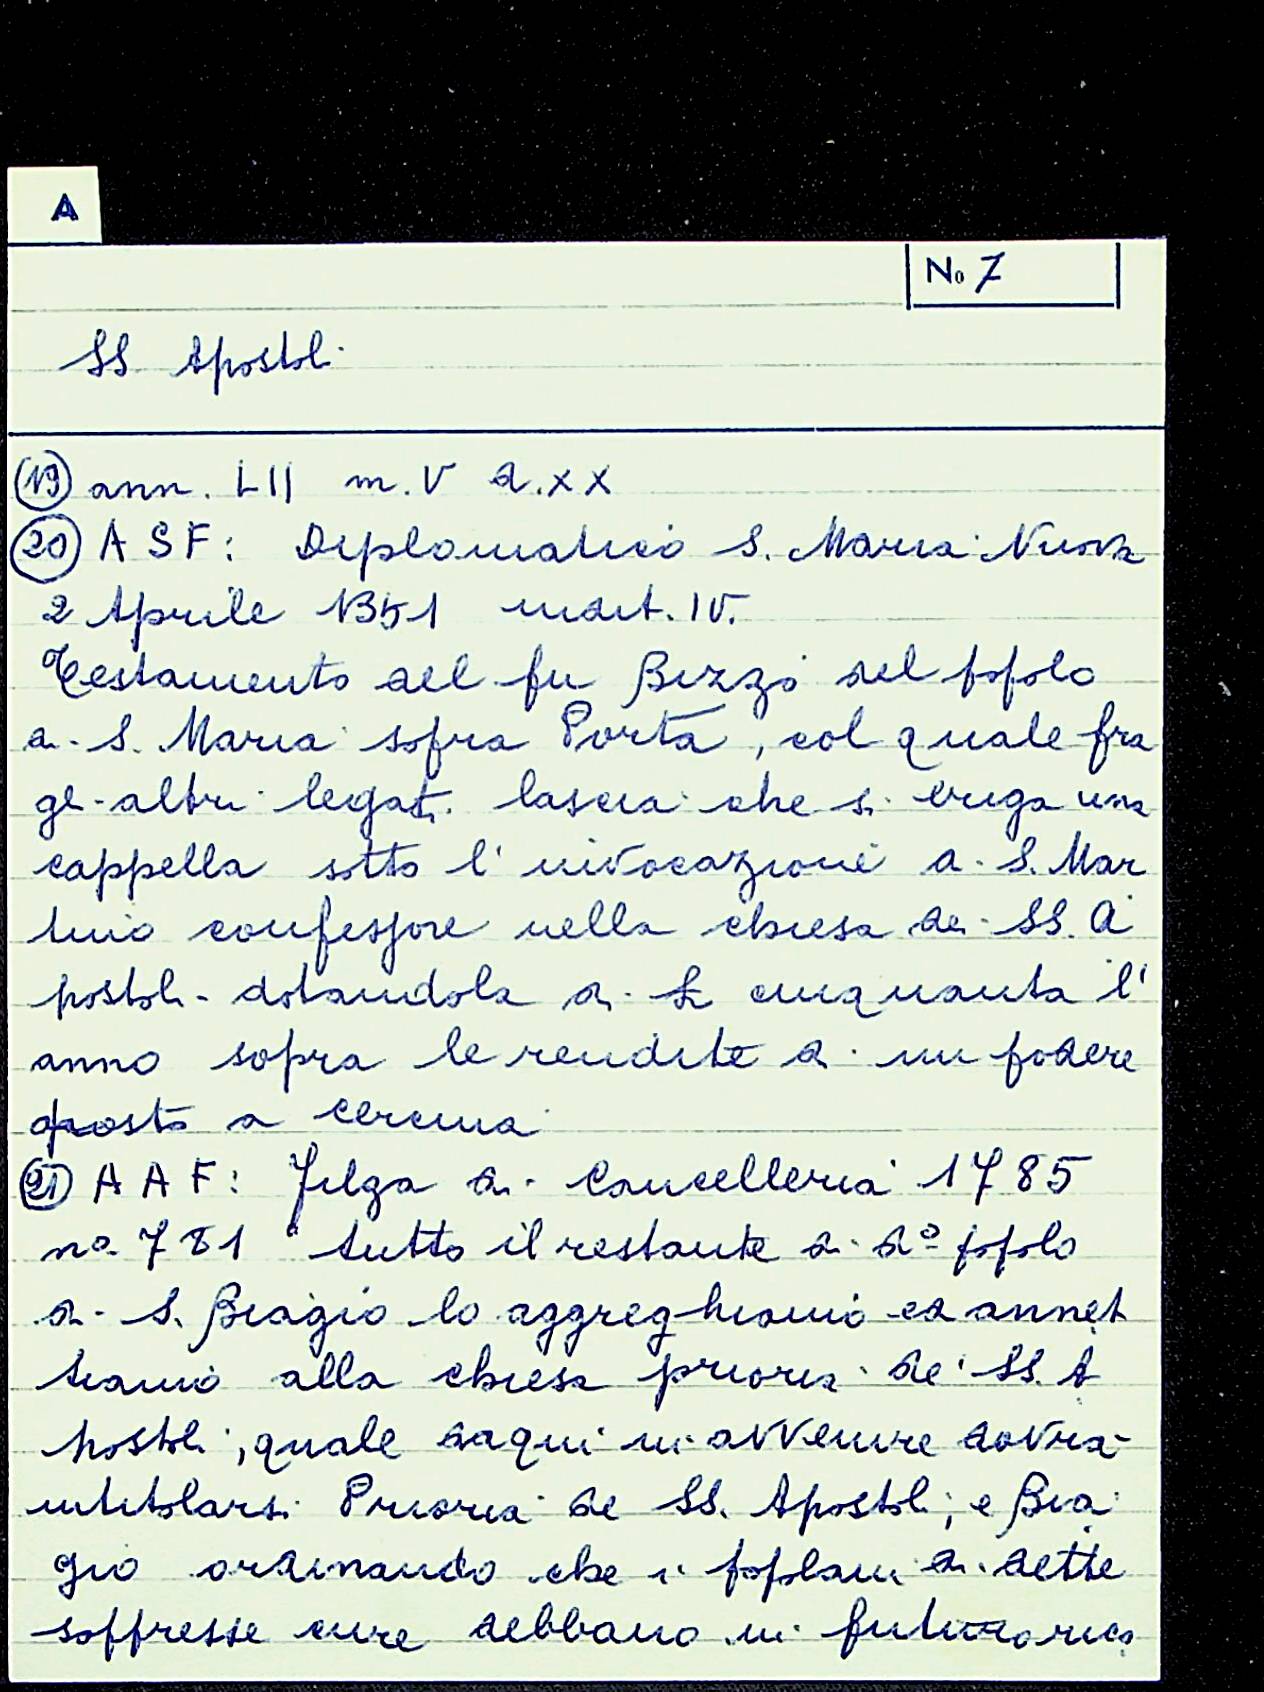 A
No 7
SS. Apostoli
(19) ann. LII m. V d. XX
(20) A S F: Diplomatico S. Maria Nuova
2 Aprile 1351 indit. IV.
Testamento del fu Bizzo del popolo
di S. Maria sopra Porta, col quale fra
gli altri legati lascia che si eriga una
cappella sotto l'invocazione di S. Mar
tino confessore nella chiesa dei SS. A
postoli dotandola di £ cinquanta l'
anno sopra le rendite di un podere
posto a Cercina
(21) A A F: Filza di Cancelleria 1785
no. 781 "tutto il restante di do popolo
di S. Biagio lo aggreghiamo ed annet
tiamo alla chiesa prioria de' SS. A
postoli, quale daqui in avvenire dovrà
intitolarsi Prioria de SS. Apostoli, e Bia
gio ordinando che i popolani di dette
soppresse cure debbano in futuro rico